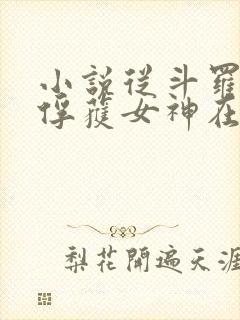 小説從斗羅
俘獲女神在
梨花開遍天涯